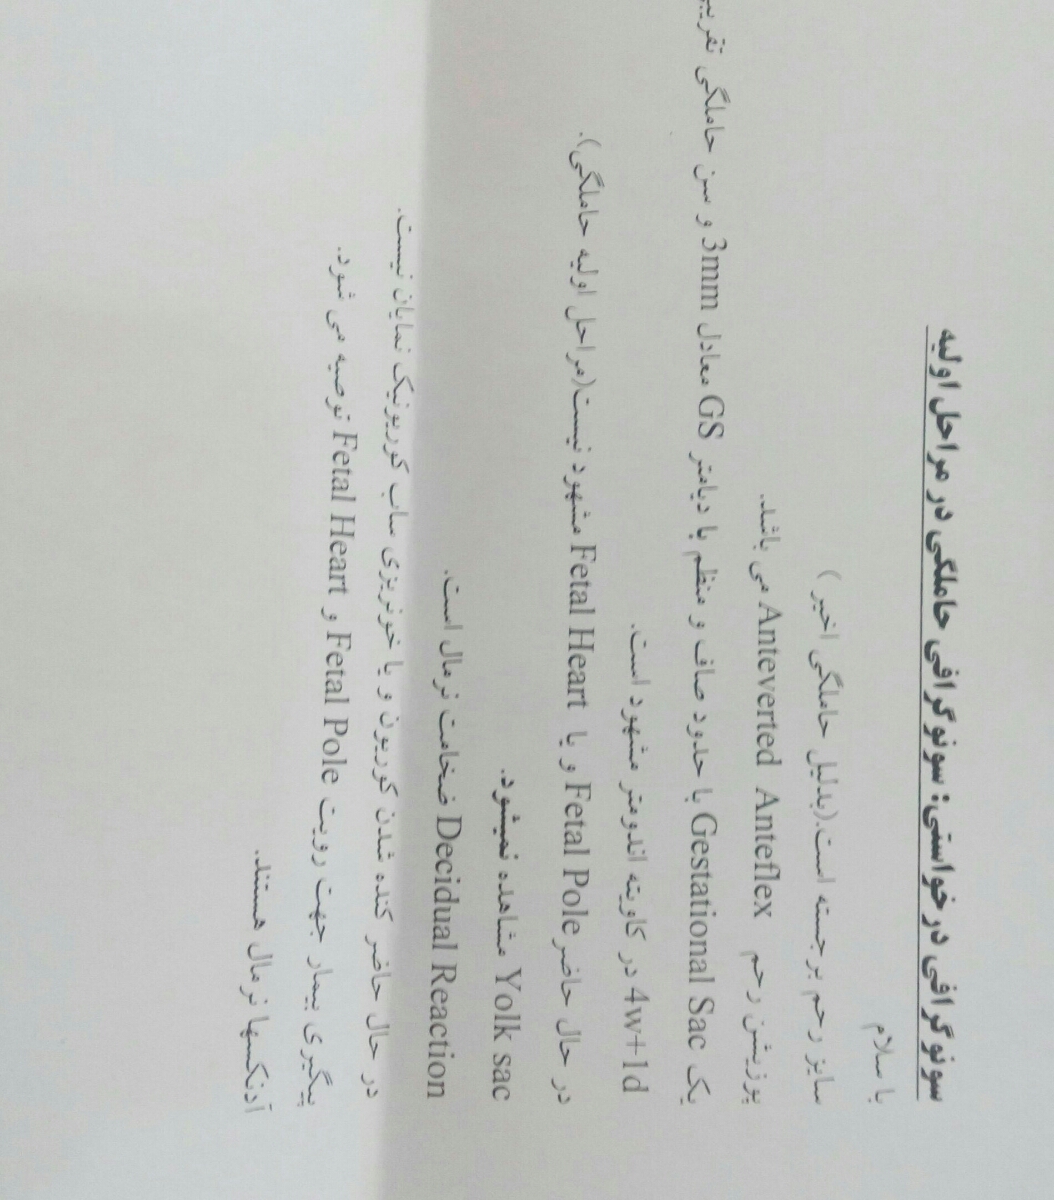 سونوگرافی درخواستی: سونوگرافی حاملگی در مراحل اولیه
با سلام
سایز رحم برجسته است.(بدلیل حاملگی اخیر )
پوزیشن رحم Anteverted Anteflex می باشد.
یک Gestational Sac با حدود صاف و منظم با دیامتر GS معادل 3mm و سن حاملگی
4w+1d در کاویته اندومتر مشهود است.
در حال حاضر Fetal Pole و یا Fetal Heart مشهود نیست(مراحل اولیه حاملگی).
Yolk sac مشاهده نمیشود.
Decidual Reaction ضخامت نرمال است.
در حال حاضر کنده شدن کوریون و یا خونریزی ساب کوریونیک نمایان نیست.
پیگیری بیمار جهت رویت Fetal Pole و Fetal Heart توصیه می شود.
آدنکسها نرمال هستند.